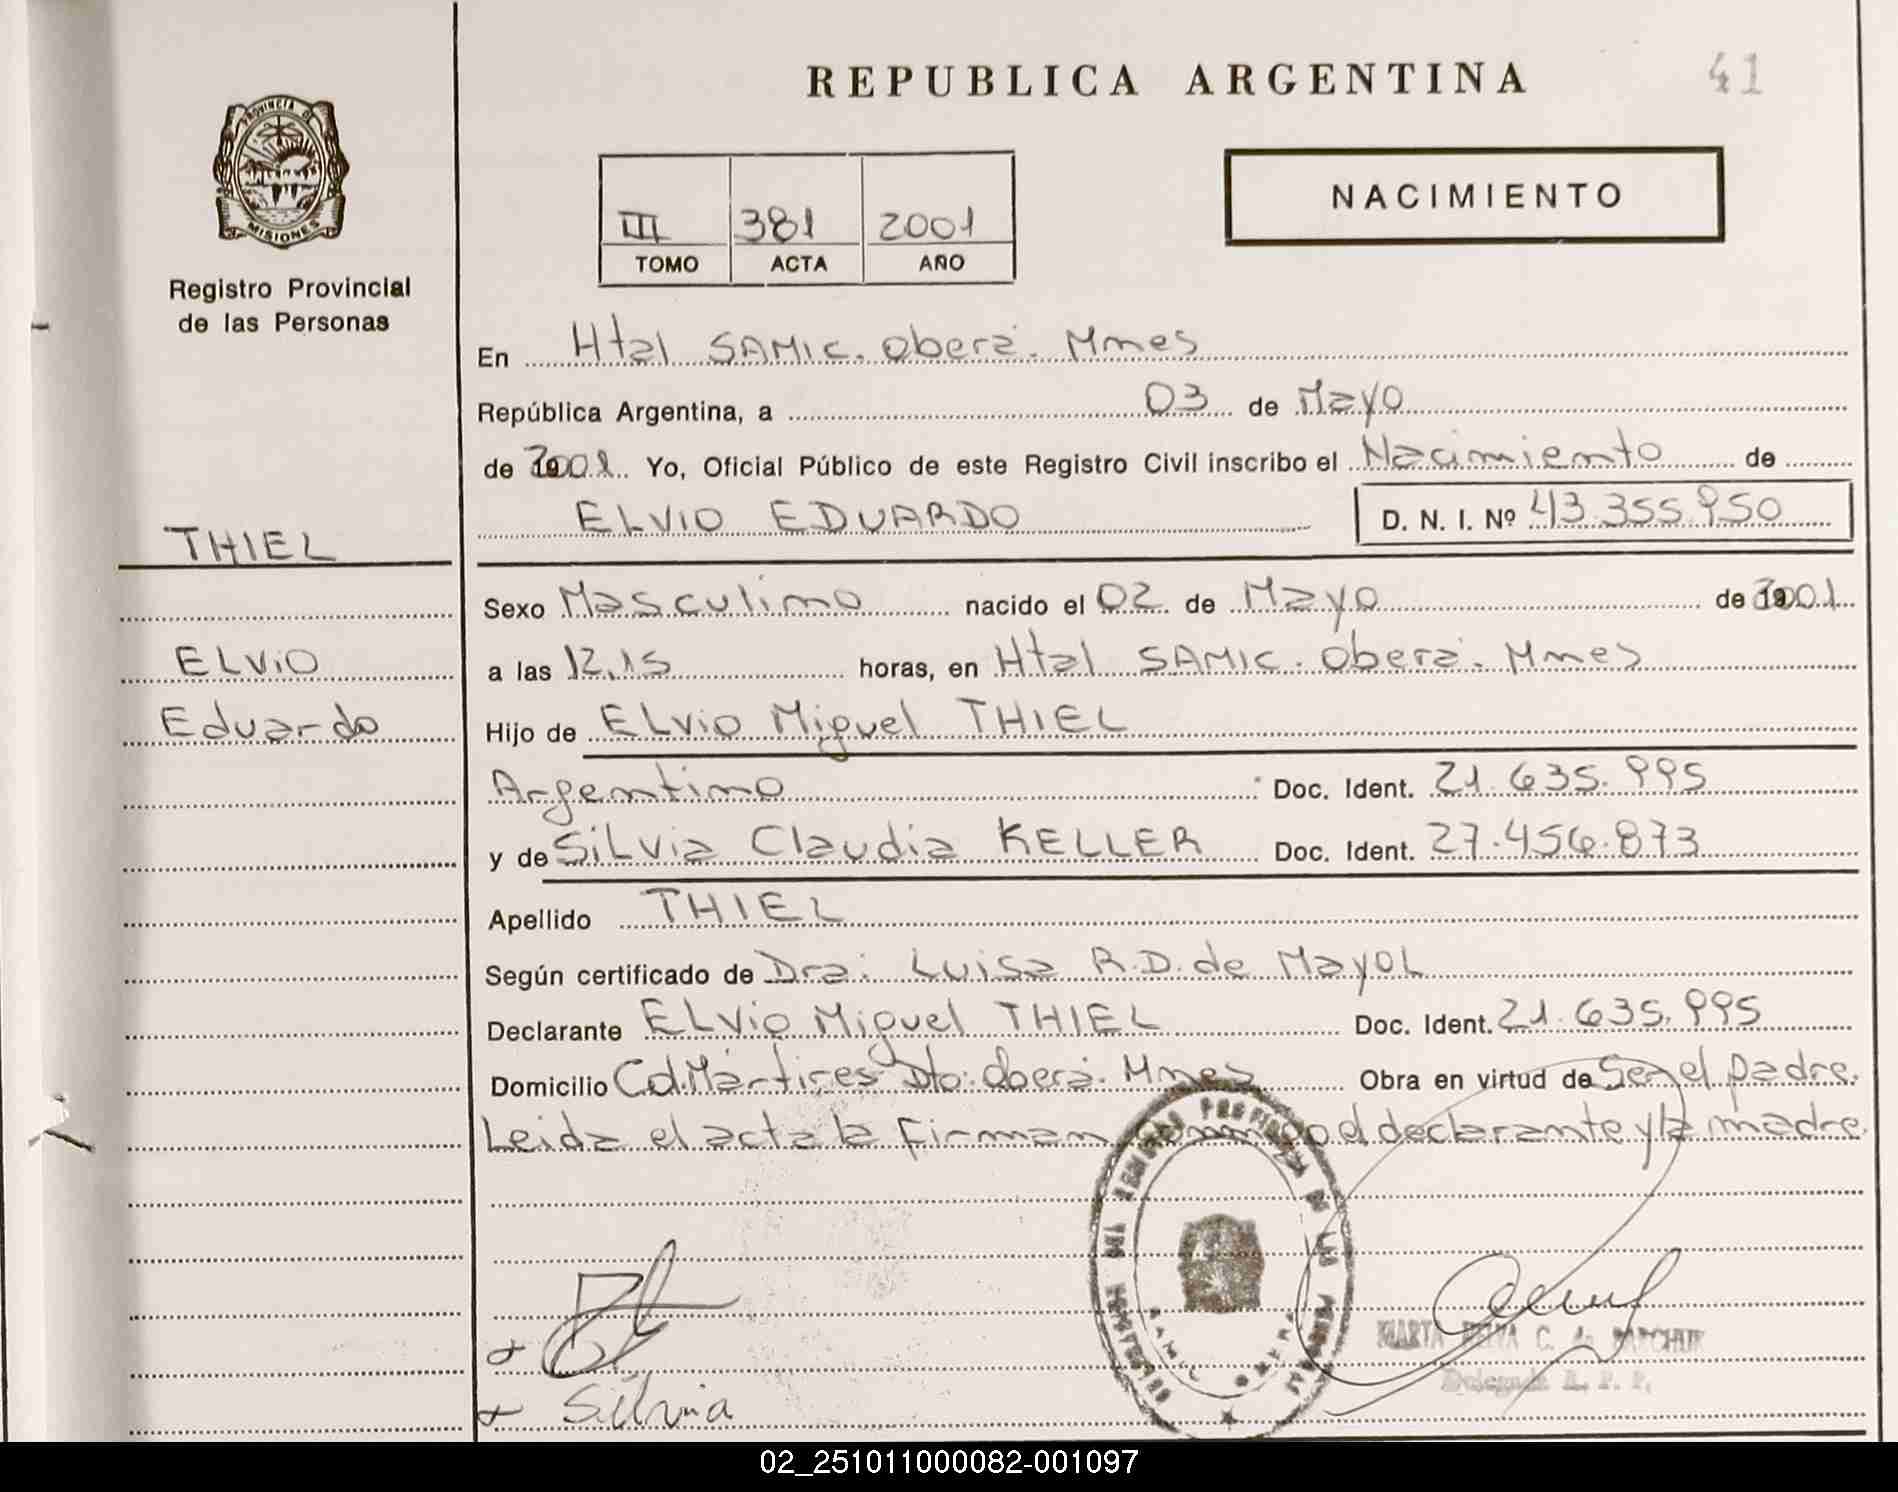 REPUBLICA ARGENTINA
41
PROVINCIA DE
MISIONES
Registro Provincial
de las Personas
III 381 2001
TOMO ACTA AÑO
NACIMIENTO
En Htal SAMIC. Oberá. Mnes
República Argentina, a 03 de Mayo
de 2001 Yo, Oficial Público de este Registro Civil inscribo el Nacimiento de
ELVIO EDUARDO D. N. I. Nº 43.355.950
THIEL
Sexo Masculino nacido el 02 de Mayo de 2001
ELVIO
a las 12,15 horas, en Htal SAMIC. Oberá. Mnes
Eduardo
Hijo de ELVIO Miguel THIEL
Argentino Doc. Ident. 21.635.995
y de SILVIA Claudia KELLER Doc. Ident. 27.456.873
Apellido THIEL
Según certificado de Dra: Luisa R.D. de Mayol
Declarante ELVIO Miguel THIEL Doc. Ident. 21.635.995
Domicilio Cd. Mártires Dto: Oberá. Mnes Obra en virtud de Ser el padre.
Leida el acta la firman conmigo el declarante y la madre.
MARTA C. de
Delegada R. P. P.
Silvia
02_251011000082-001097